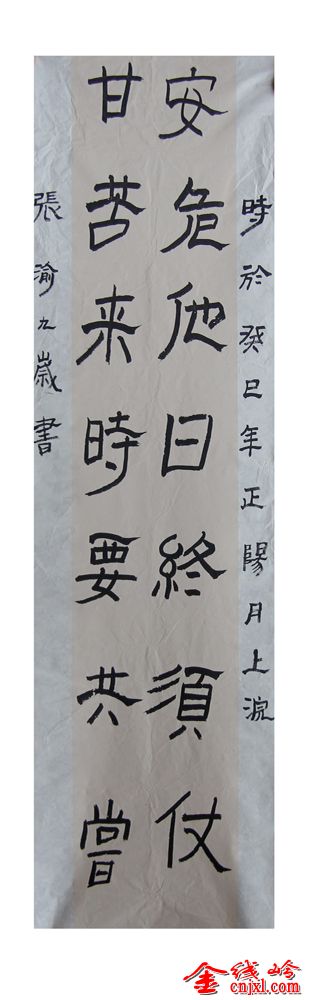 時於癸巳年正陽月上浣
安危他日終須仗
甘苦来時要共嘗
張渝九歲書
金线岭
cnjxl.com